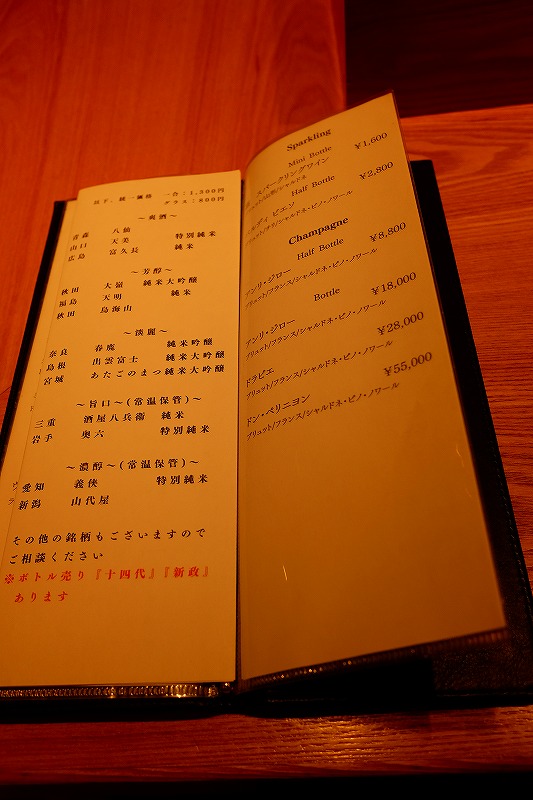 以下、統一価格　一合：1,500円
グラス：800円
～爽酒～
青森　八仙
山口　天美　特別純米
広島　富久長　純米
～芳醇～
秋田　大嶺　純米大吟醸
福島　天明　純米
秋田　鳥海山
～淡麗～
奈良　春鹿　純米吟醸
島根　出雲富士　純米大吟醸
宮城　あたごのまつ純米大吟醸
～旨口～(常温保管)
三重　酒屋八兵衛　純米
岩手　奥六　特別純米
～濃醇～(常温保管)
愛知　義侠　特別純米
新潟　山代屋
その他の銘柄もございますので
ご相談ください
※ボトル売り『十四代』『新政』
あります
Sparkling
Mini Bottle
スパークリングワイン ¥1,600
シャルドネ
Half Bottle
ルディ ピエソ ¥2,800
シャルドネ・ピノ・ノワール
Champagne
Half Bottle
アンリ・ジロー ¥8,800
ブリュット/フランス/シャルドネ・ピノ・ノワール
Bottle
アンリ・ジロー ¥18,000
ブリュット/フランス/シャルドネ・ピノ・ノワール
ドラピエ ¥28,000
ブリュット/フランス/シャルドネ・ピノ・ノワール
ドン・ペリニヨン ¥55,000
ブリュット/フランス/シャルドネ・ピノ・ノワール